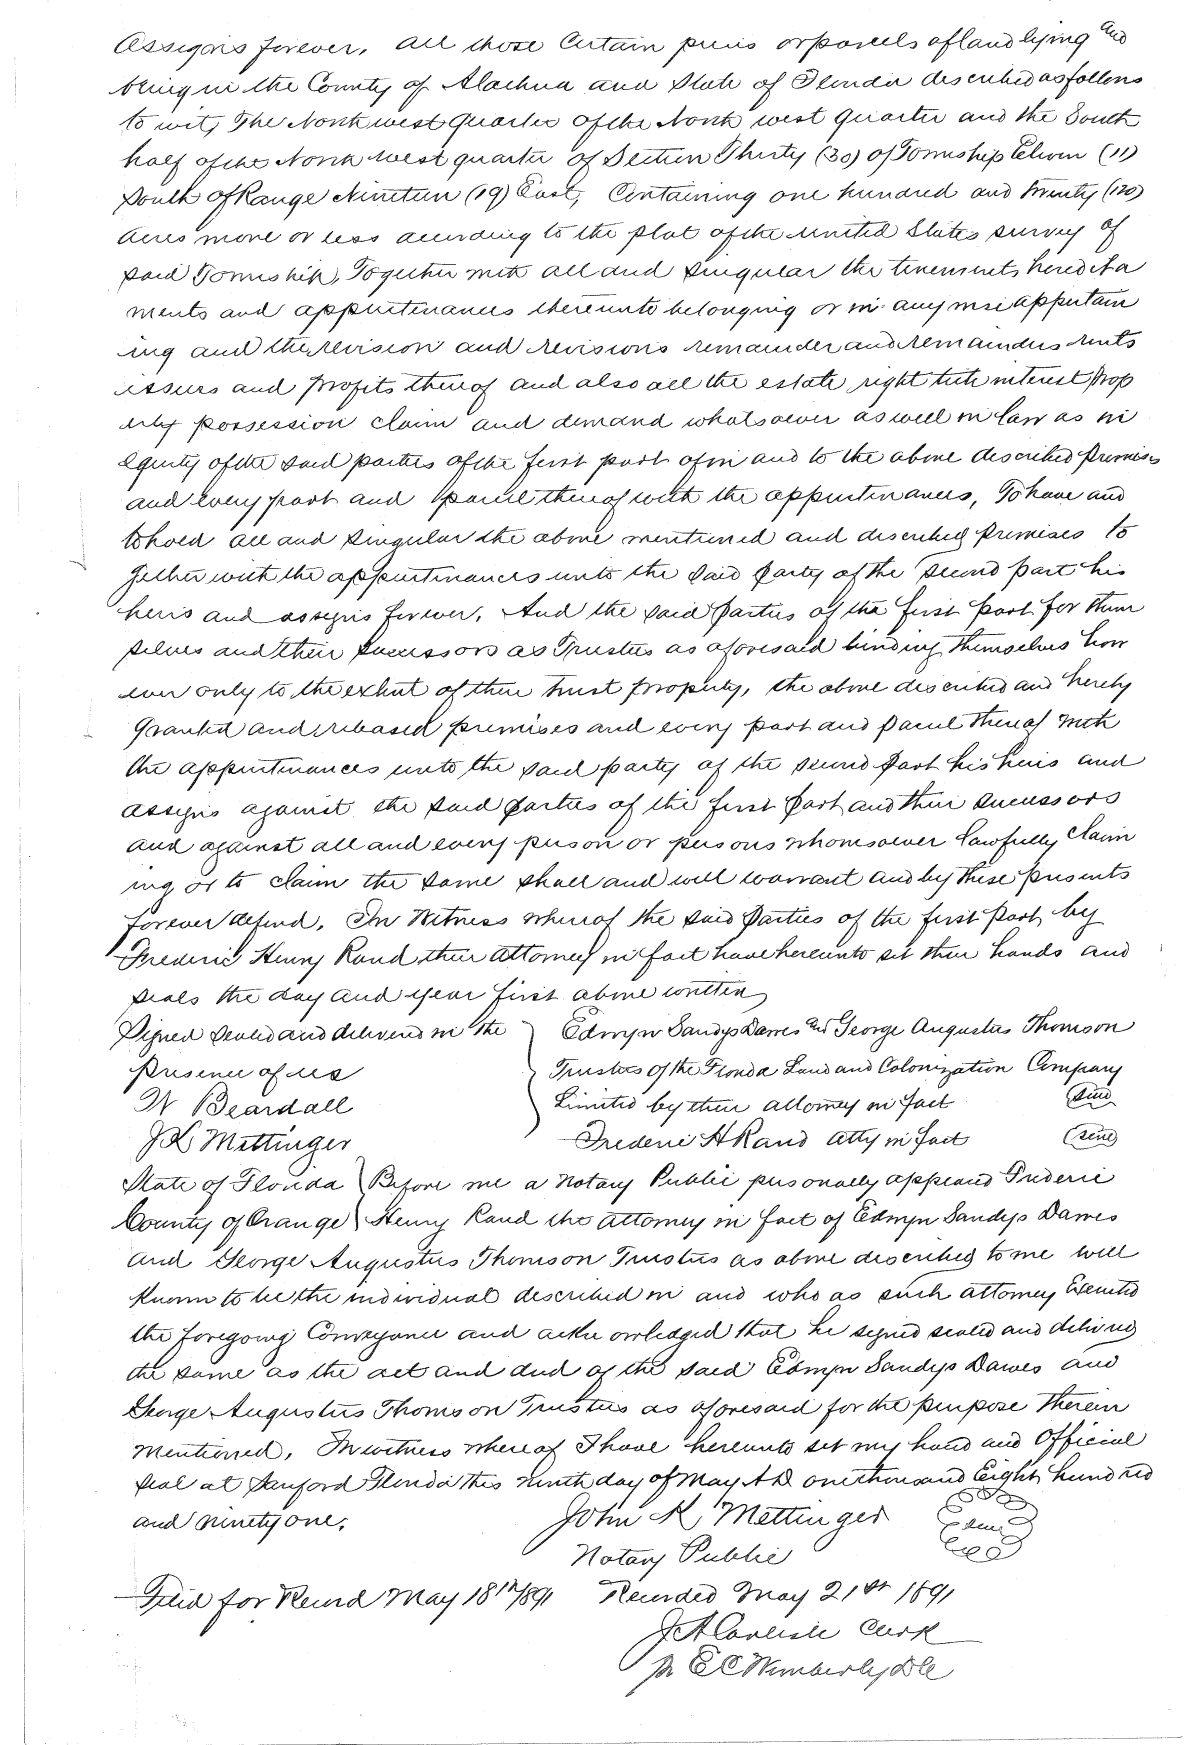 assigns forever, all those Certain pieces or parcels of land lying and
being in the County of Alachua and State of Florida described as follows
to wit, The North west quarter of the North west quarter and the South
half of the North west quarter of Section Thirty (30) of Township Eleven (11)
South of Range Nineteen (19) East, Containing one hundred and twenty (120)
acres more or less according to the plat of the united States survey of
said Township, Together with all and singular the tenements heredita
ments and appurtenances thereunto belonging or in any wise appertain
ing and the revision and revisions remainder and remainders rents
issues and profits thereof and also all the estate right title interest prop
erty possession claim and demand whatsoever as well in law as in
equity of the said parties of the first part of in and to the above described premises
and every part and parcel thereof with the appurtenances, To have and
to hold all and singular the above mentioned and described premises to
gether with the appurtenances unto the said party of the second part his
heirs and assigns forever, And the said parties of the first part for them
selves and their successors as Trustees as aforesaid binding themselves how
ever only to the extent of their trust property, the above described and hereby
granted and released premises and every part and parcel thereof with
the appurtenances unto the said party of the second part his heirs and
assigns against the said parties of the first part and their successors
and against all and every person or persons whomsoever lawfully claim
ing or to claim the same shall and will warrant and by these presents
forever defend. In Witness whereof the said parties of the first part by
Frederic Henry Rand their attorney in fact have hereunto set their hands and
seals the day and year first above written
Signed sealed and delivered in the } Edwyn Sandys Dawes and George Augustus Thomson
presence of us Trustees of the Florida Land and Colonization Company
W Beardall Limited by their attorney in fact (seal)
J K Mettinger Frederic H Rand atty in fact (seal)
State of Florida } Before me a Notary Public personally appeared Frederic
County of Orange } Henry Rand the attorney in fact of Edwyn Sandys Dawes
and George Augustus Thomson Trustees as above described to me well
known to be the individual described in and who as such attorney Executed
the foregoing Conveyance and acknowledged that he signed sealed and delivered
the same as the act and deed of the said Edwyn Sandys Dawes and
George Augustus Thomson Trustees as aforesaid for the purpose therein
mentioned. In witness whereof I have hereunto set my hand and Official
seal at Sanford Florida this ninth day of May A D one thousand Eight hundred
and ninety one. John K Mettinger
Notary Public
Filed for Record May 18th/891 Recorded May 21st 1891
J A Carlisle Clerk
pr E C Wimberly D C